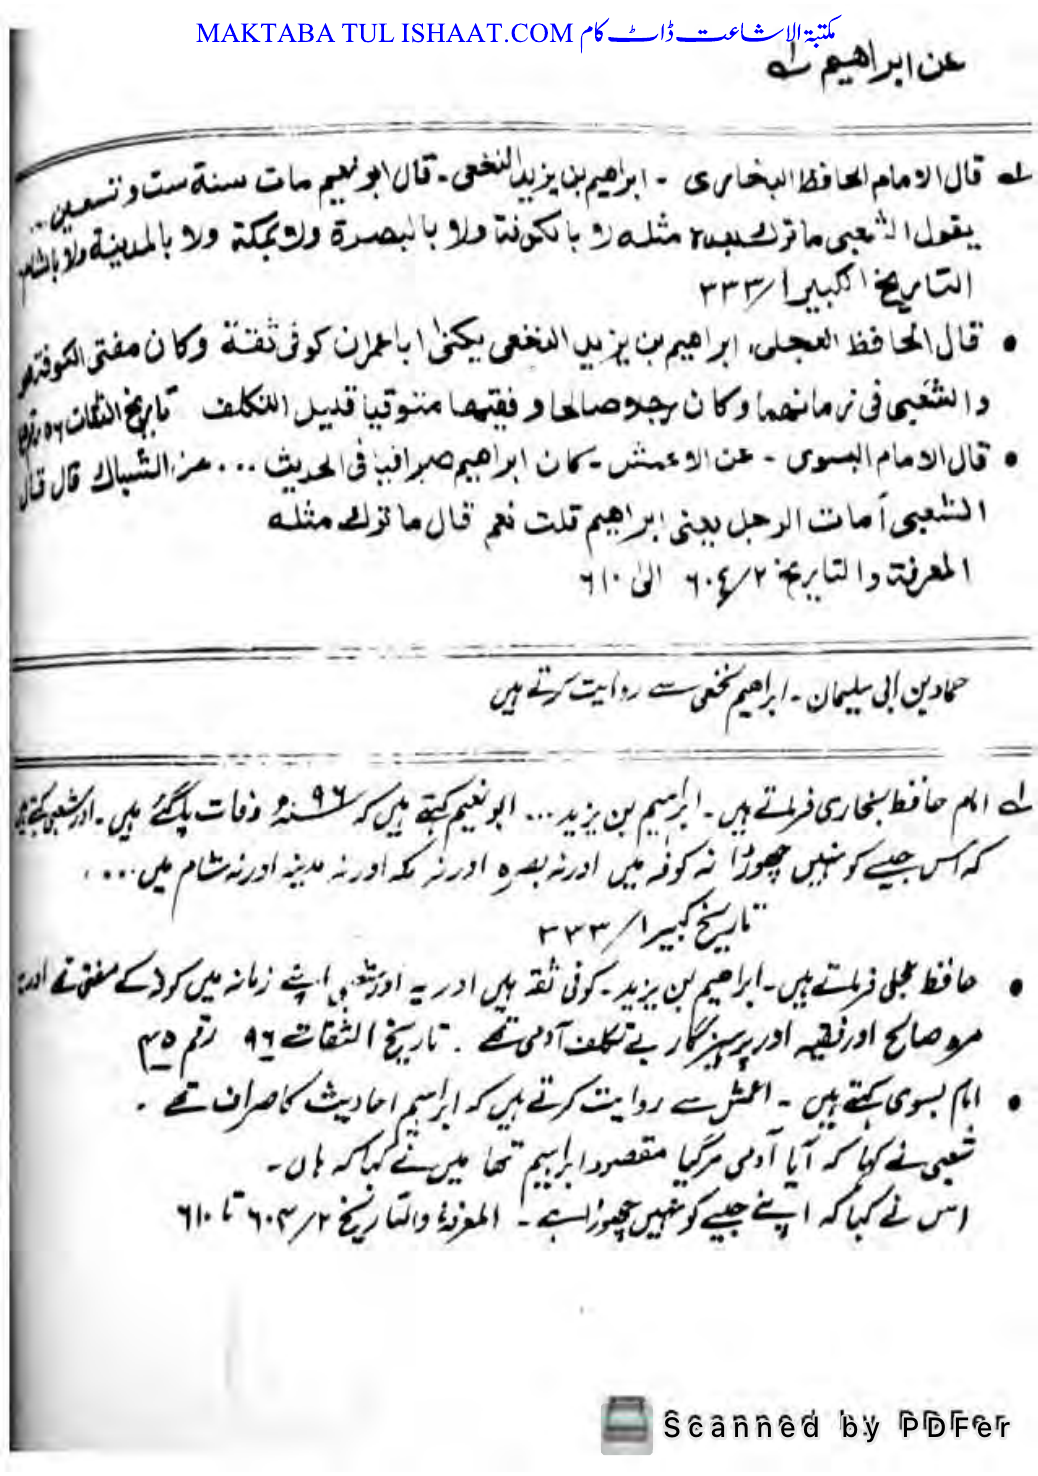 MAKTABA TUL ISHAAT.COM مکتبۃ الاشاعت ڈاٹ کام
عن ابراهيم لـه
لـه قال الامام الحافظ البخاري - ابراهيم بن يزيد النخعي - قال ابو نعيم مات سنة ست وتسعين...
يقول الشعبي ما ترك بعده مثله لا بالكوفة ولا بالبصرة ولا بمكة ولا بالمدينة ولا بالشام
التاريخ الكبير ١/٣٣٣
• قال الحافظ العجلى، ابراهيم بن يزيد النخعي يكنى ابا عمران كوفى ثقة وكان مفتى الكوفة هو
والشعبي فى زمانهما وكان رجلا صالحا و فقيها متوقيا قليل التكلف تاريخ الثقات ٥٦
• قال الامام البسوى - عن الاعمش - كان ابراهيم صيرافيا فى الحديث ... عن الشباك قال قال
الشعبي أمات الرجل يعنى ابراهيم قلت نعم قال ما ترك مثله
المعرفة والتاريخ ٢/٦٠٤ الى ٦١٠
حماد بن ابی سلیمان - ابراهیم نخعی سے روایت کرتے ہیں
لـه امام حافظ بخاری فرماتے ہیں - ابراہیم بن یزید ... ابو نعیم کہتے ہیں کہ ۹۶ سنہ وفات پا گئے ہیں - اور شعبی کہتے ہیں
کہ اس جیسے کو نہیں چھوڑا نہ کوفہ میں اور نہ بصرہ اور نہ مکہ اور نہ مدینہ اور نہ شام میں ...
تاریخ کبیر ۱/۳۳۳
• حافظ عجلی فرماتے ہیں - ابراهیم بن یزید - کوفی ثقہ ہیں اور یہ اور شعبی اپنے زمانہ میں کوفہ کے مفتی تھے اور
مرد صالح اور فقیہ اور پرہیزگار بے تکلف آدمی تھے . تاریخ الثقات ۹۶ رقم ۴۵
• امام بسوی کہتے ہیں - اعمش سے روایت کرتے ہیں کہ ابراہیم احادیث کا صراف تھے .
شعبی نے کہا کہ آیا آدمی مر گیا مقصود ابراہیم تھا میں نے کہا کہ ہاں -
اس نے کہا کہ اپنے جیسے کو نہیں چھوڑا ہے - المعرفۃ والتاریخ ۲/۶۰۴ تا ۶۱۰
Scanned by PDFer